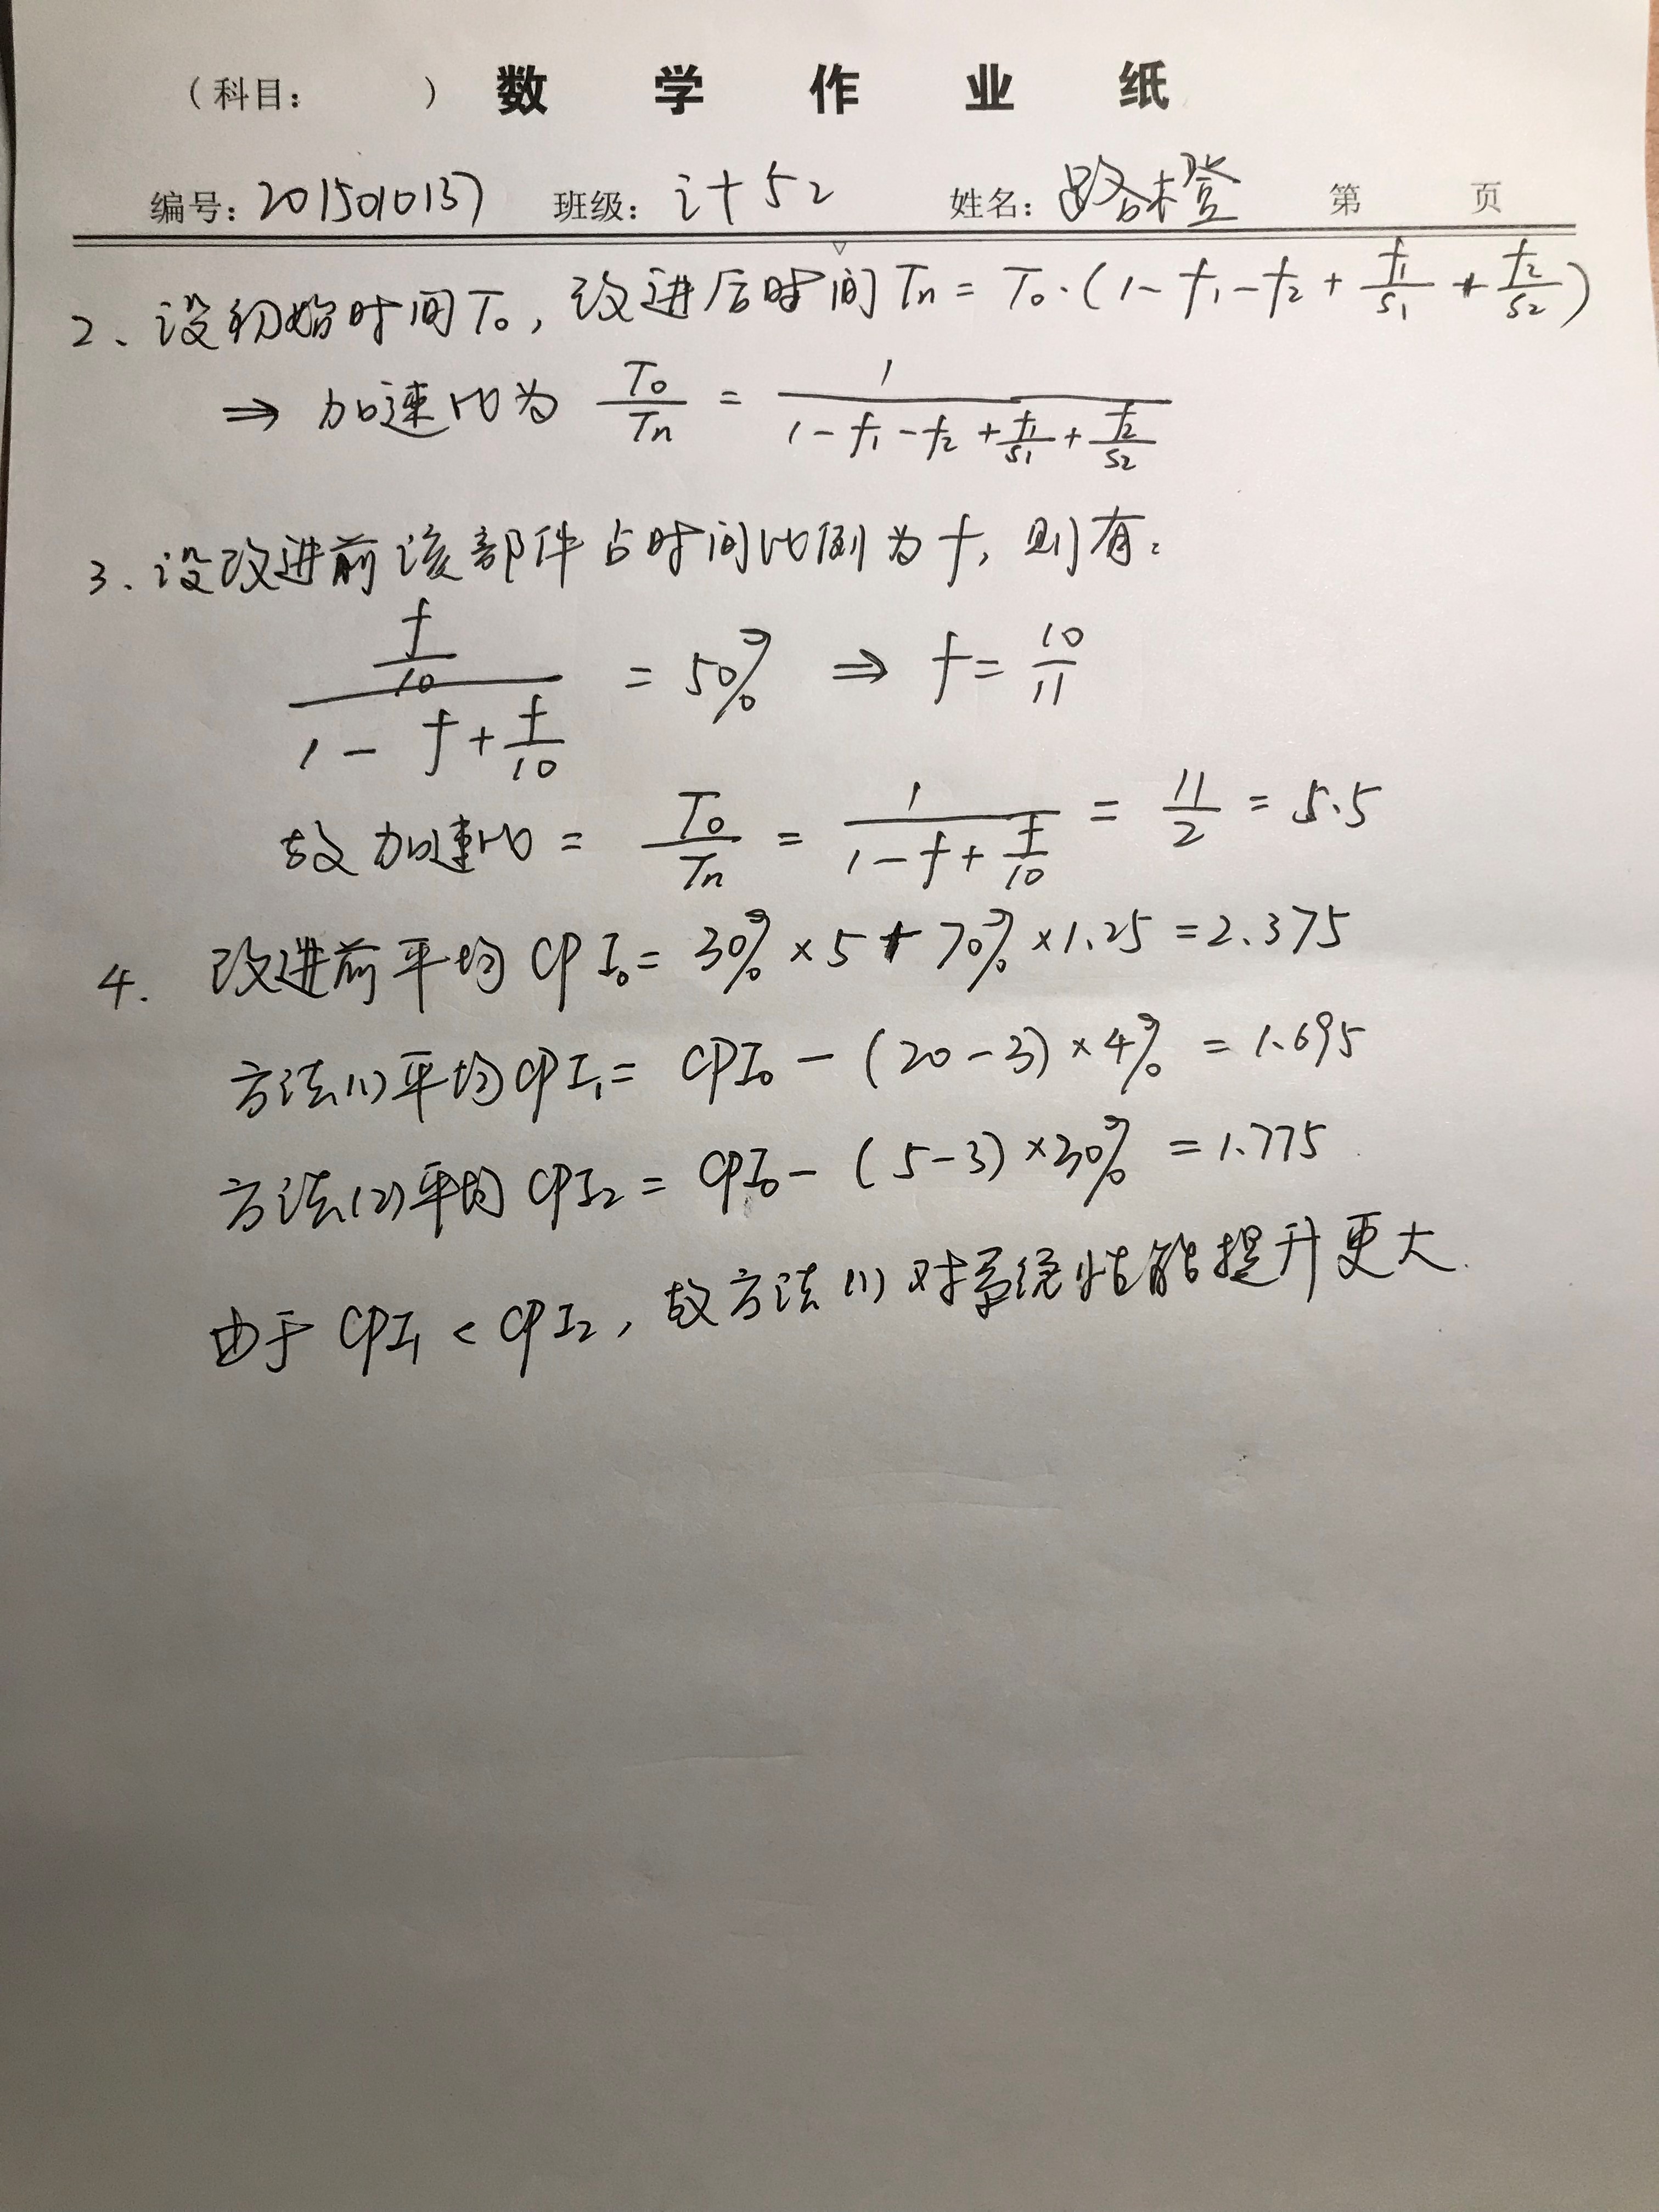 （科目：　　　） 数 学 作 业 纸
编号：2015010137 班级：计52 姓名：路橙 第 页
2、设初始时间T₀, 改进后时间Tn = T₀·(1 - f₁ - f₂ + f₁/s₁ + f₂/s₂)
⇒ 加速比为 T₀/Tn = 1/(1 - f₁ - f₂ + f₁/s₁ + f₂/s₂)
3、设改进前该部件占时间比例为f, 则有：
(f/10)/(1 - f + f/10) = 50% ⇒ f = 10/11
故加速比 = T₀/Tn = 1/(1 - f + f/10) = 11/2 = 5.5
4. 改进前平均CPI₀ = 30% × 5 + 70% × 1.25 = 2.375
方法(1)平均CPI₁ = CPI₀ - (20 - 3) × 4% = 1.695
方法(2)平均CPI₂ = CPI₀ - (5 - 3) × 30% = 1.775
由于CPI₁ < CPI₂, 故方法(1)对系统性能提升更大.